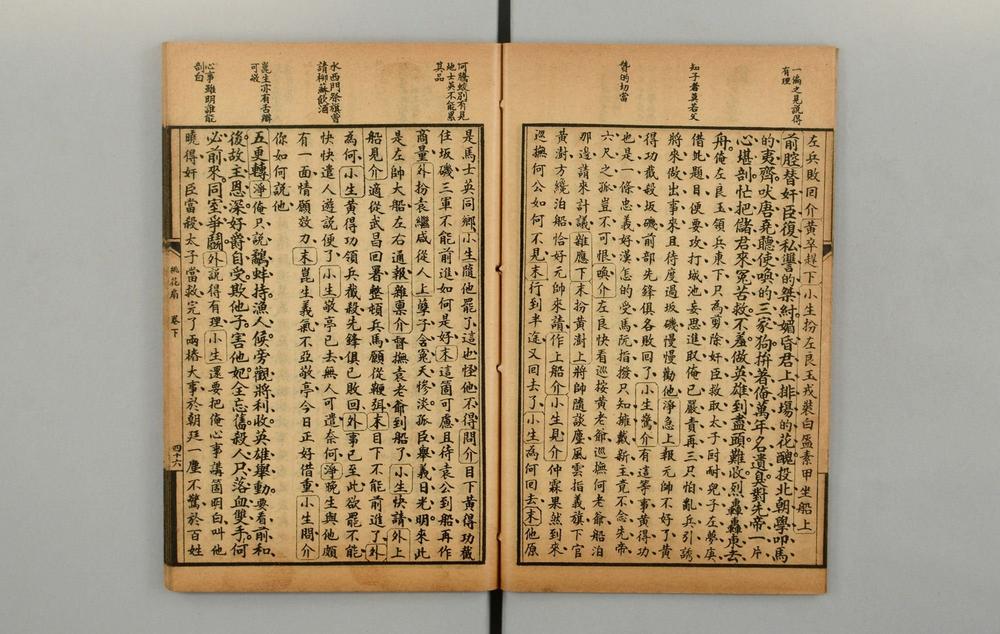 一偏之見說得
有理
知子者莫若父
贊的切當
左兵敗回介黃卒趕下小生扮左良玉戎裝白盔素甲坐船上
前腔替奸臣復私讐的桀紂媚昏君上排場的花醜投北朝學叩馬
的夷齊吠唐堯聽使喚的三家狗拚著俺萬年名遺臭對先帝一片
心堪剖忙把儲君來冤苦救不羞做英雄到盡頭難收烈轟轟東去
舟俺左良玉領兵東下只為剪除奸臣救取太子叵耐兒子左夢庚
借此題目便要攻打城池妄思進取俺已嚴責再三只怕亂兵引誘
將來做出事來且待度過坂磯慢慢勸他淨急上報元帥不好了黃
得功截殺坂磯前部先鋒俱各敗回了小生驚介有這等事黃得功
也是一條忠義好漢怎的受馬阮指撥只知擁戴新王竟不念先帝
六尺之孤豈不可恨喚介左良快看巡按黃老爺巡撫何老爺船泊
那邊請來計議雜應下末扮黃澍上將帥隨談麈風雲指義旗下官
黃澍方纔泊船恰好元帥來請作上船介小生見介仲霖果然到來
巡撫何公如何不見末行到半途又回去了小生為何回去末他原
何騰蛟別有見
地士英不能累
其品
水西門祭旗嘗
請柳蘇飲酒
崑生亦有舌辯
可敬
心事雖明誰能
剖白
是馬士英同鄉小生隨他罷了這也怪他不得問介目下黃得功截
住坂磯三軍不能前進如何是好末這箇可慮且待袁公到船再作
商量外扮袁繼咸從人上孽子含冤天慘淡孤臣舉義日光明來此
是左帥大船左右通報雜稟介督撫袁老爺到船了小生快請外上
船見介適從武昌回署整頓兵馬願從鞭弭末目下不能前進了外
為何小生黃得功領兵截殺先鋒俱已敗回外事已至此欲罷不能
快快遣人遊說便了小生敬亭已去無人可遣奈何淨晚生與他頗
有一面情願效力末崑生義氣不亞敬亭今日正好借重小生問介
你如何說他
五更轉淨俺只說鷸蚌持漁人候旁觀將利收英雄舉動要看前和
後故主恩深好爵自受欺他子害他妃全忘舊殺人只落血雙手何
必前來同室爭鬭外說得有理小生還要把俺心事講箇明白叫他
曉得奸臣當殺太子當救完了兩樁大事於朝廷一塵不驚於百姓
桃花扇 卷下
四十六